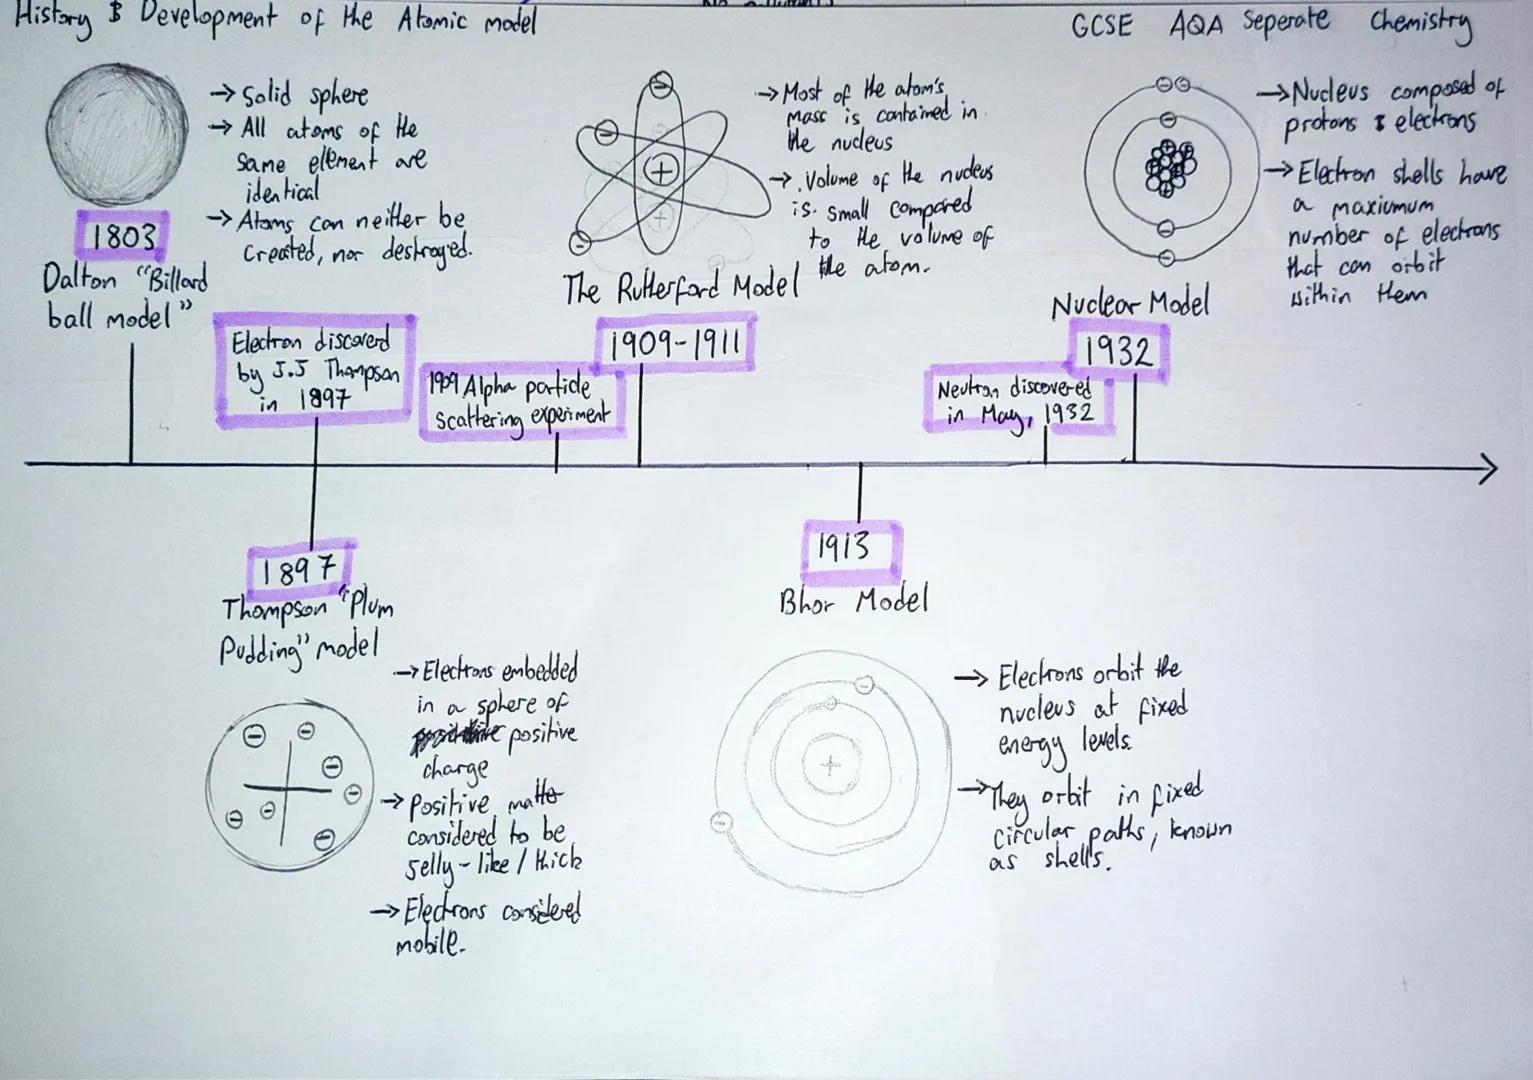 History & Development of the Atomic model
GCSE AQA Seperate Chemistry
→ Solid sphere
→ All atoms of the
same ellement are
identical
→ Atoms can neither be
created, nor destroyed.
1803
Dalton "Billard
ball model"
Electron discoverd
by J.J Thompson
in 1897
+
→ Most of the atom's
mass is contained in
the nucleus
→ Volume of the nucleus
is small compared
to the volume of
the atom.
The Rutherford Model
1909-1911
1909 Alpha particle
scattering experiment
→ Nucleus composed of
protons & electrons
→ Electron shells have
a maxiumum
number of electrons
that can orbit
within them
Nuclear Model
1932
Neutron discovered
in May, 1932
1897
Thompson "Plum
Pudding" model
→ Electrons embedded
in a sphere of
positive
charge
→ Positive matter
considered to be
Jelly-like / thick
→ Electrons considered
mobile.
1913
Bhor Model
+
→ Electrons orbit the
nucleus at fixed
energy levels.
→ They orbit in fixed
circular paths, known
as shells.